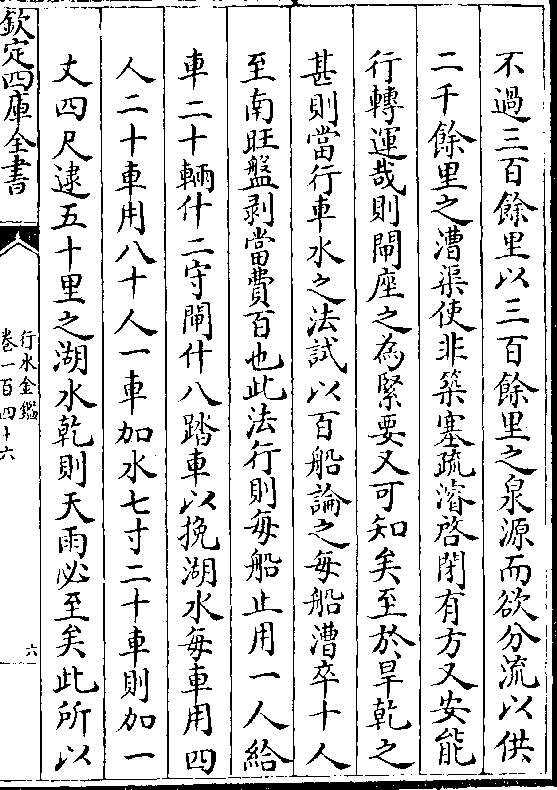 不過三百餘里以三百餘里之泉源而欲分流以供
二千餘里之漕渠使非築塞疏濬啓閉有方又安能
行轉運哉則閘座之為緊要又可知矣至於旱乾之
甚則當行車水之法試以百船論之每船漕卒十人
至南旺盤剥當費百也此法行則每船止用一人給
車二十輛什二守閘什八踏車以挽湖水每車用四
人二十車用八十人一車加水七寸二十車則加一
丈四尺逮五十里之湖水乾則天雨必至矣此所以
欽定四庫全書
行水金鑑
卷一百四十六
六